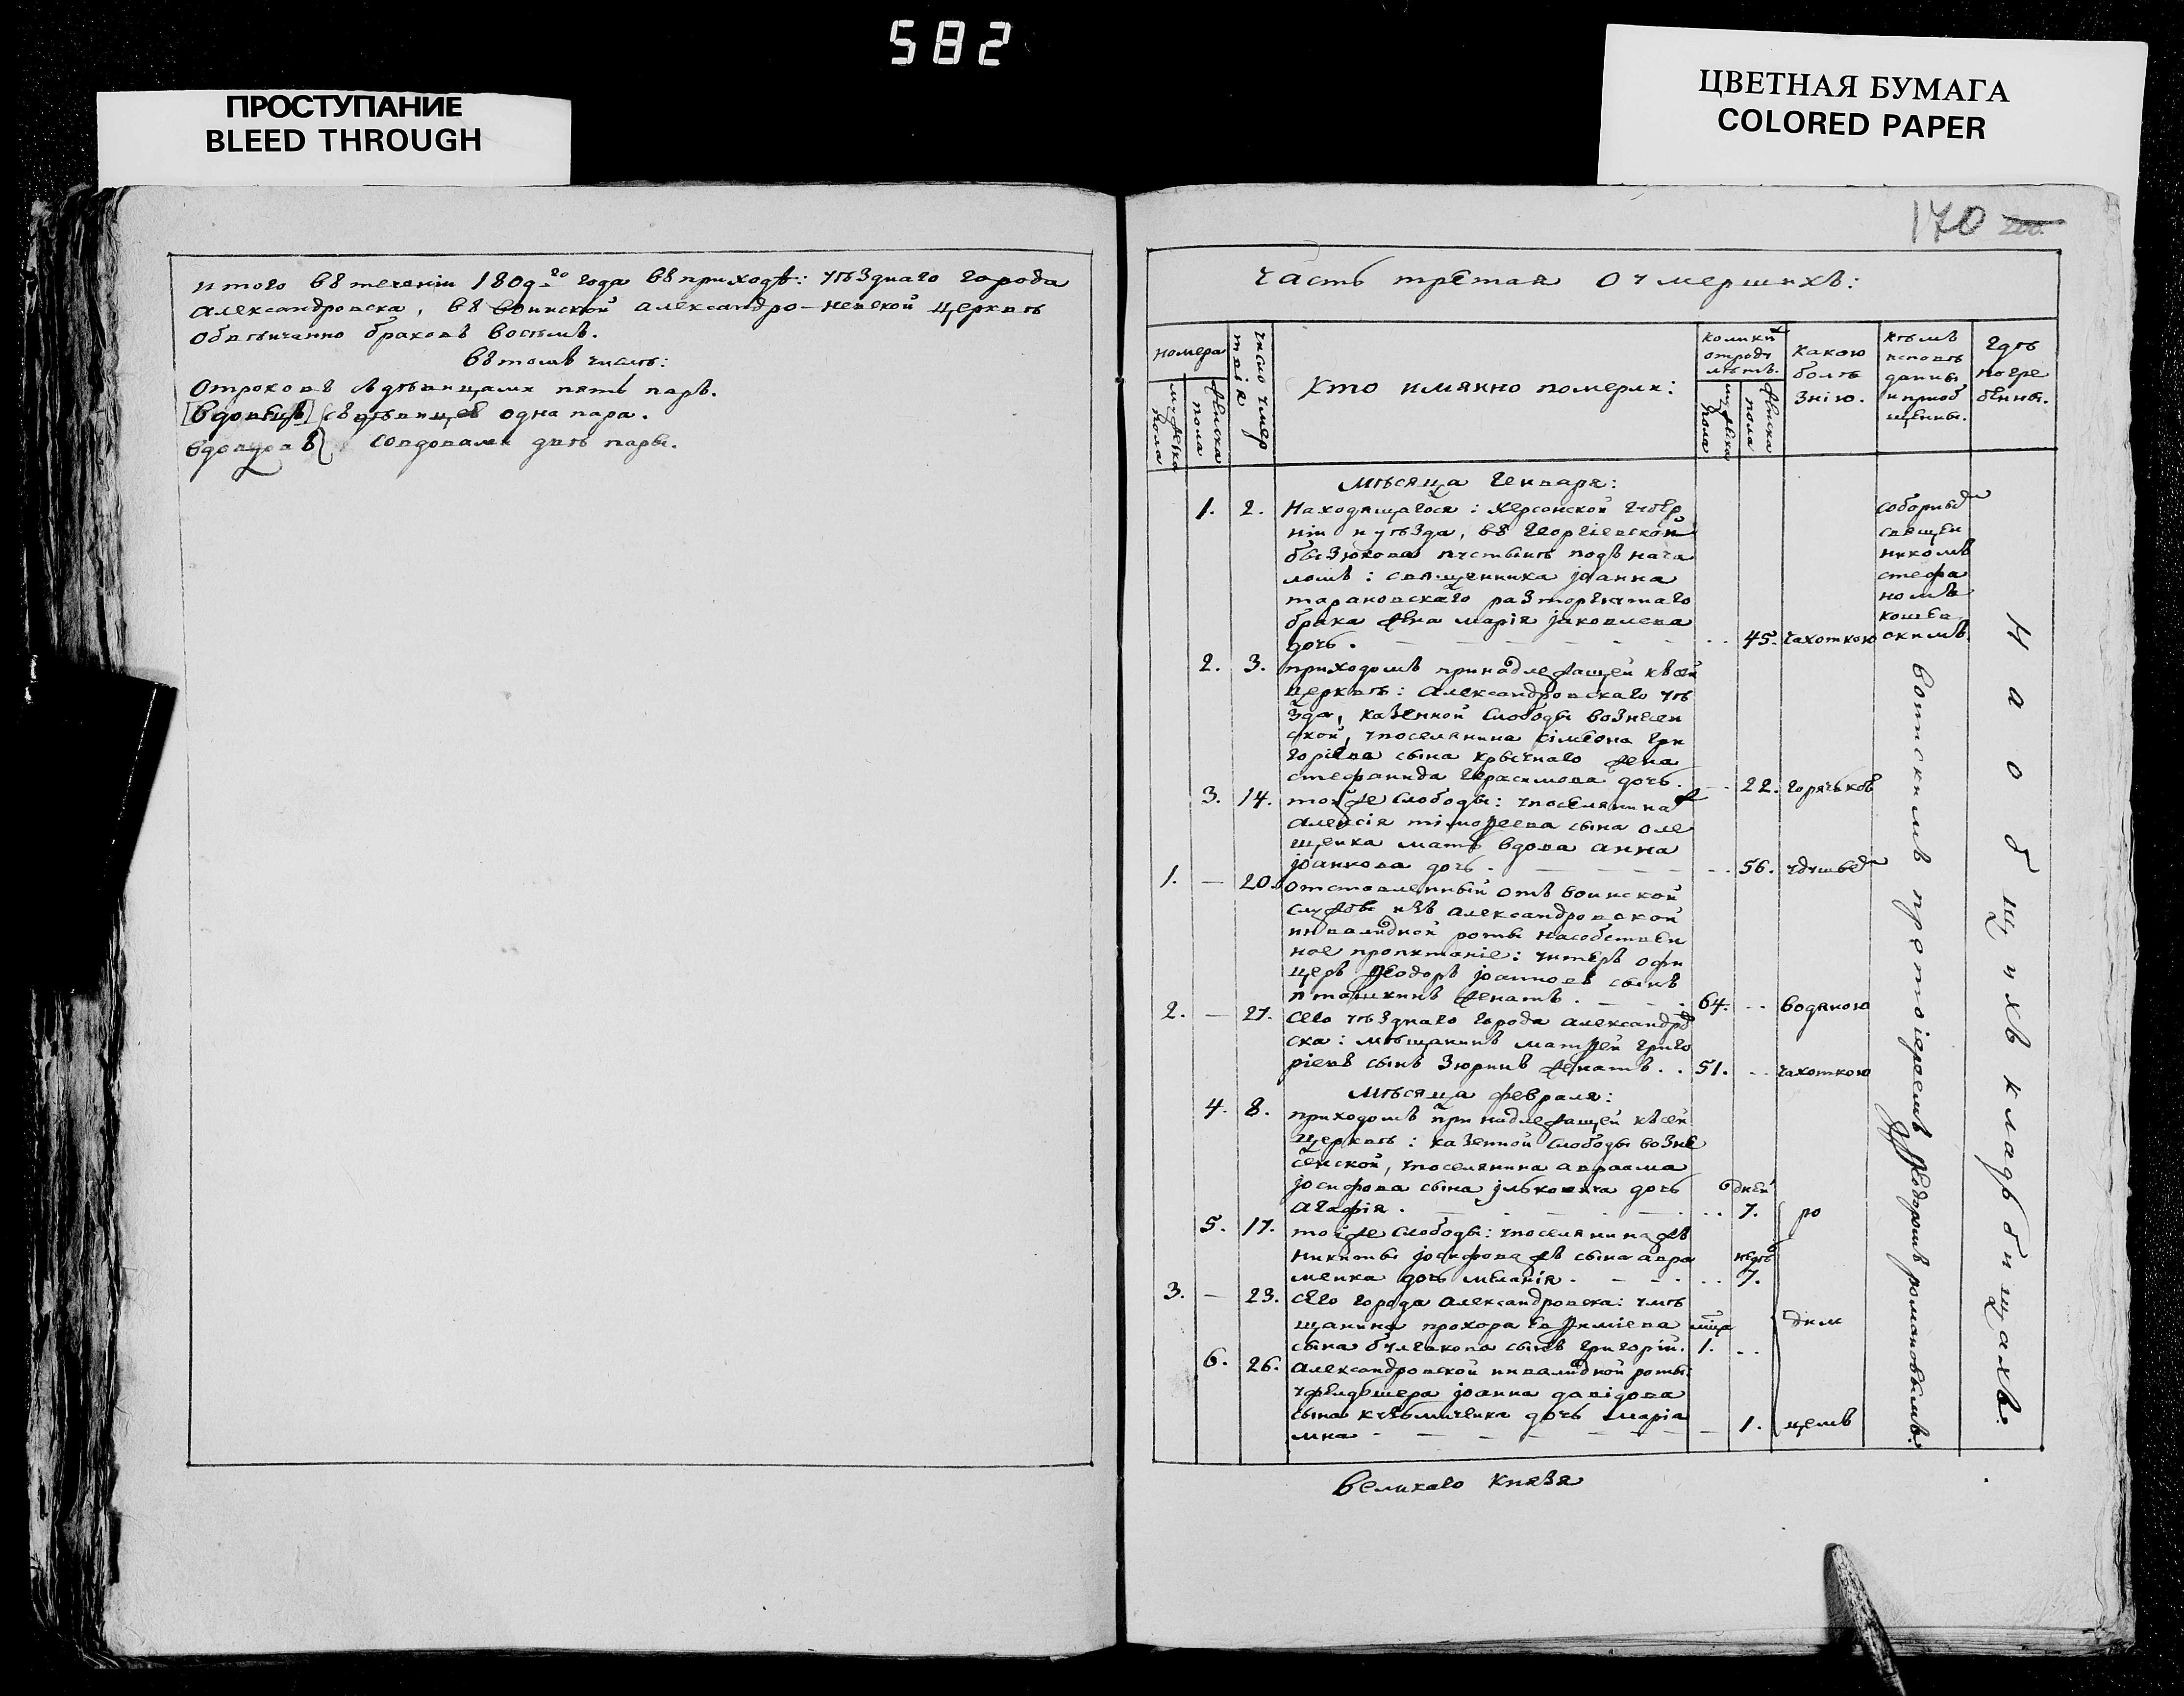 582
ПРОСТУПАНИЕ
BLEED THROUGH
ЦВЕТНАЯ БУМАГА
COLORED PAPER
итого въ теченіи 1809го года въ приходѣ: уѣзднаго города
александровска, въ воинской александро-невской церквѣ
обвѣнчанно браковъ восѣмъ.
въ томъ числѣ:
отроковъ съ дѣвицами пять паръ.
вдовецъ съ дѣвицей одна пара.
вдовцовъ со вдовами двѣ пары.
170
Часть третая о умершихъ:
номера
мужеска пола
женска пола
число умертвія
кто имянно померли:
коликихъ отроду лѣтъ.
мужеска пола
женска пола
какою болѣзнію.
кѣмъ исповѣданны и приобщенны.
гдѣ погребенны.
Мѣсяца генваря:
1. 2. Находящагося: херсонской губер
ніи и уѣзда, въ георгіевской
бызюкова пустынѣ подъ нача
ломъ: священника іоанна
тарановскаго разторгнутаго
брака жена марія іаковлева
дочь. 45. чахоткою
соборныъ
священ
никомъ
стефа
номъ
кошев
скимъ
2. 3. приходомъ принадлежащей къ сей
церквѣ: александровскаго уѣ
зда, казенной слободы вознесен
ской, поселянина сімеона гри
горіева сына крычнаго жена
стефанида герасимова дочь. 22. горячкою
3. 14. той же слободы: поселянина
алексія тімоѳеева сына оле
щенка мать вдова анна
іоаннова дочь. 56. удушьем
1. — 20. отставленный отъ воинской
службы изъ александровской
инвалидной роты на собствен
ное пропитаніе: унтеръ офи
церъ ѳеодоръ іоанновъ сынъ
пташкинъ женатъ. 64. водяною
2. — 27. сего уѣзднаго города александров
ска: мѣщанинъ матѳей григо
ріевъ сынъ зюринъ женатъ. 51. чахоткою
Мѣсяца февраля:
4. 8. приходомъ принадлежащей къ сей
церквѣ: казенной слободы возне
сенской, поселянина авраама
іосифова сына ільковича дочь
агафія. дней 7.
5. 17. той же слободы: поселянина жъ
никиты іосифова жъ сына авра
менка дочь меланія. недѣ 7.
3. — 23. сего города александровска: умѣ
щанина прохора евѳиміева
сына булгакова сынъ григорій. мца 1.
6. 26. александровской инвалидной роты:
уфелдшера іоанна давідова
сына кузьмиченка дочь маріа
мна 1.
родимцемъ
воинскимъ протоіереемъ ѳеодоромъ романовымъ.
На общихъ кладбищахъ.
великаго князя